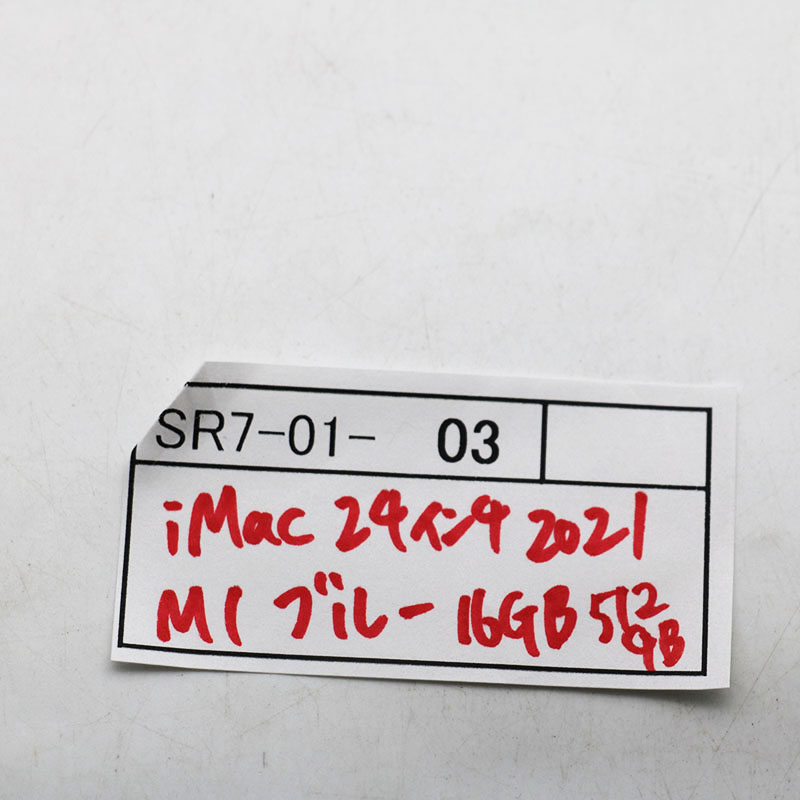 SR7-01- 03
iMac 24インチ 2021
M1 ブルー 16GB 512GB